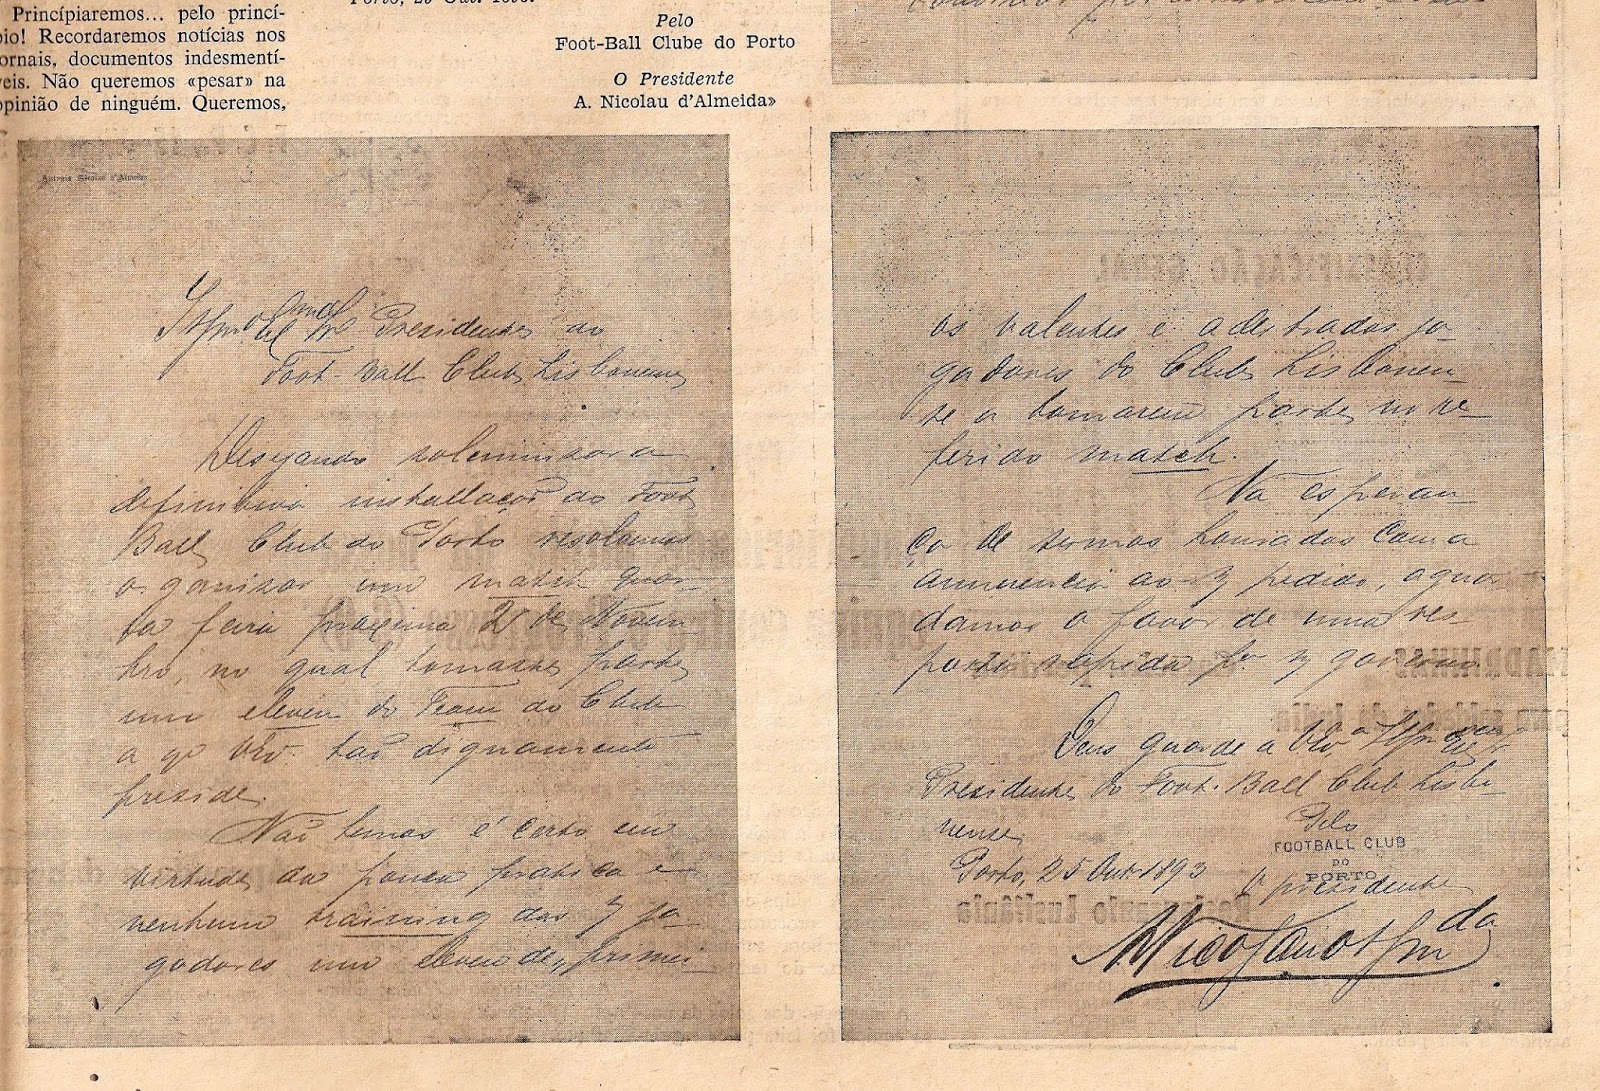 Princípiaremos... pelo princí-
pio! Recordaremos notícias nos
jornais, documentos indesmentí-
veis. Não queremos «pesar» na
opinião de ninguém. Queremos,
Pelo
Foot-Ball Clube do Porto
O Presidente
A. Nicolau d'Almeida»
Antonio Nicolau d'Almeida
Presidente do
Foot-Ball Club Lisbonense
Desejando solemnisar a
definitiva installação do Foot
Ball Club do Porto resolvemos
organisar um match quar-
ta feira proxima 2 de Novem
bro, no qual tomasse parte
um eleven do Team do Club
a qe tão dignamente
preside.
Não temos é certo em
virtude da pouca pratica e
nenhum training dos jo-
gadores um eleven de primei-
os valentes e adestrados jo-
gadores do Club Lisbonen-
se a tomarem parte no re-
ferido match.
Na esperan-
ça de sermos honrados com a
annuencia ao pedido, aguar-
damos o favor de uma res-
posta rapida governo.
Deus guarde a
Presidente do Foot-Ball Club Lisbo-
nense
Pelo
FOOTBALL CLUB
DO
PORTO
Porto, 25 Out. 1893
O presidente